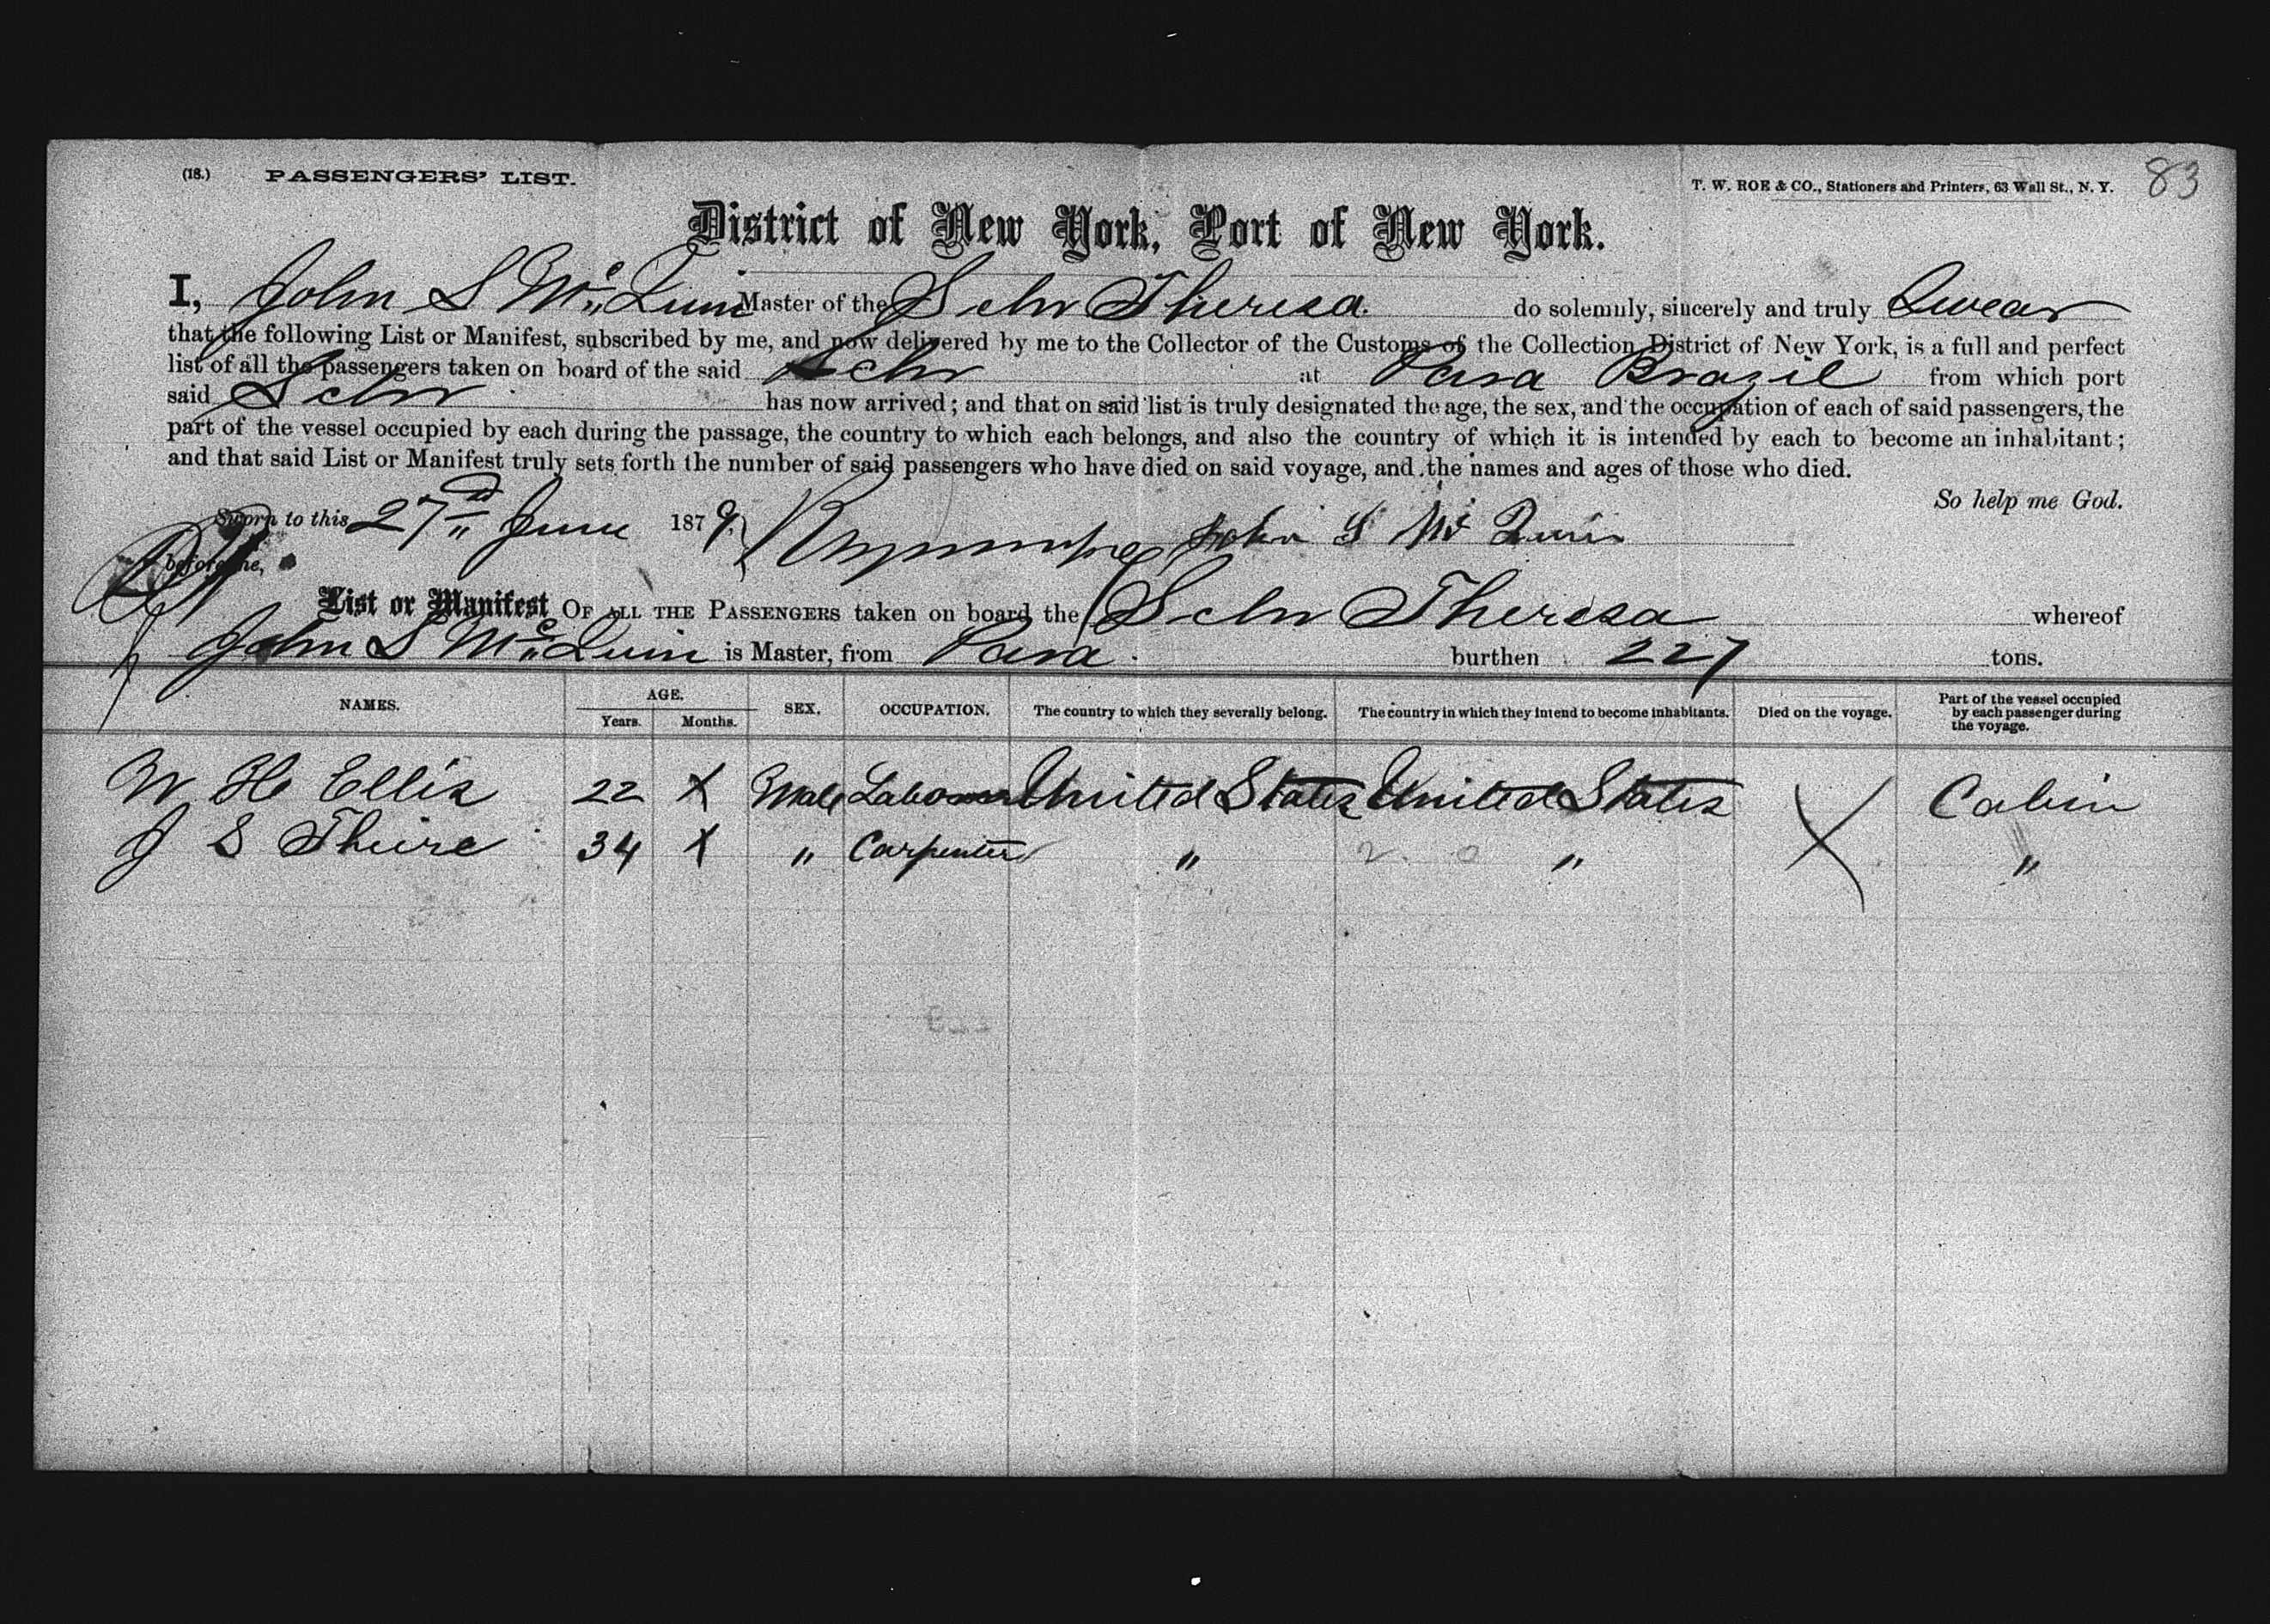 (18.) PASSENGERS' LIST. T. W. ROE & CO., Stationers and Printers, 63 Wall St., N. Y. 83
District of New York, Port of New York.
I, John S Mc Quin Master of the Schr Theresa. do solemnly, sincerely and truly Swear
that the following List or Manifest, subscribed by me, and now delivered by me to the Collector of the Customs of the Collection District of New York, is a full and perfect
list of all the passengers taken on board of the said Schr at Para Brazil from which port
said Schr has now arrived; and that on said list is truly designated the age, the sex, and the occupation of each of said passengers, the
part of the vessel occupied by each during the passage, the country to which each belongs, and also the country of which it is intended by each to become an inhabitant;
and that said List or Manifest truly sets forth the number of said passengers who have died on said voyage, and the names and ages of those who died.
So help me God.
Sworn to this 27 June 1879 John S Mc Quin
before me,
List or Manifest OF ALL THE PASSENGERS taken on board the Schr Theresa whereof
John S Mc Quin is Master, from Para. burthen 227 tons.
NAMES. AGE. Years. Months. SEX. OCCUPATION. The country to which they severally belong. The country in which they intend to become inhabitants. Died on the voyage. Part of the vessel occupied by each passenger during the voyage.
W H Ellis 22 X Male Laborer United States United States X Cabin
J S 34 X " Carpenter " " "